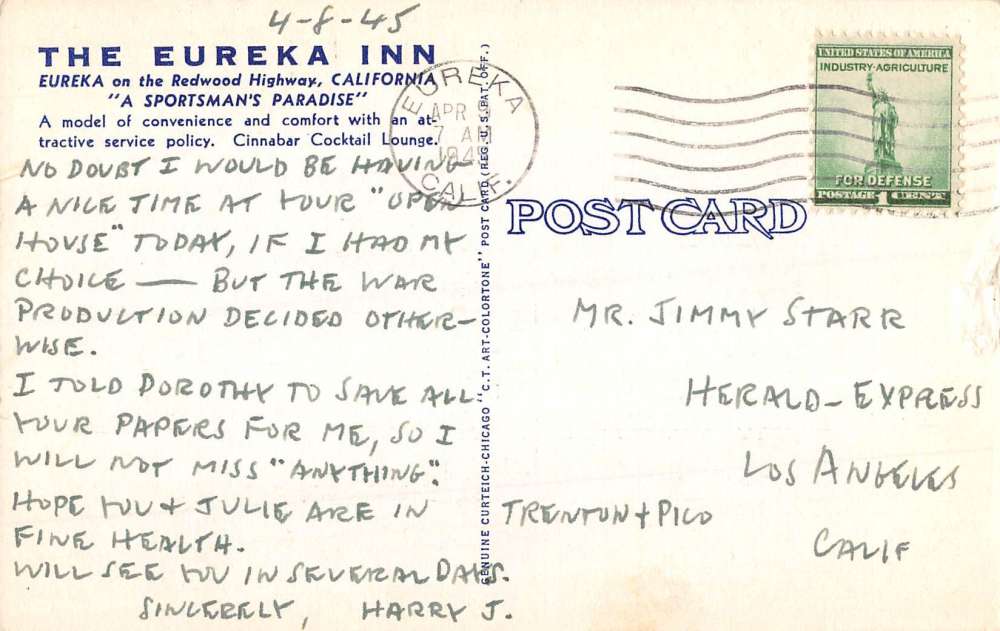 4-8-45
THE EUREKA INN
EUREKA on the Redwood Highway, CALIFORNIA
"A SPORTSMAN'S PARADISE"
A model of convenience and comfort with an at-
tractive service policy. Cinnabar Cocktail Lounge.
NO DOUBT I WOULD BE HAVING
A NICE TIME AT YOUR "OPEN
HOUSE" TODAY, IF I HAD MY
CHOICE — BUT THE WAR
PRODUCTION DECIDED OTHER-
WISE.
I TOLD DOROTHY TO SAVE ALL
YOUR PAPERS FOR ME, SO I
WILL NOT MISS "ANYTHING".
HOPE YOU + JULIE ARE IN
FINE HEALTH.
WILL SEE YOU IN SEVERAL DAYS.
SINCERELY, HARRY J.
GENUINE CURTEICH-CHICAGO "C.T. ART-COLORTONE" POST CARD (REG. U.S. PAT. OFF.)
EUREKA
APR 9
7 AM
CALIF.
UNITED STATES OF AMERICA
INDUSTRY-AGRICULTURE
FOR DEFENSE
POSTAGE 1 CENT
POST CARD
MR. JIMMY STARR
HERALD-EXPRESS
LOS ANGELES
TRENTON + PICO
CALIF